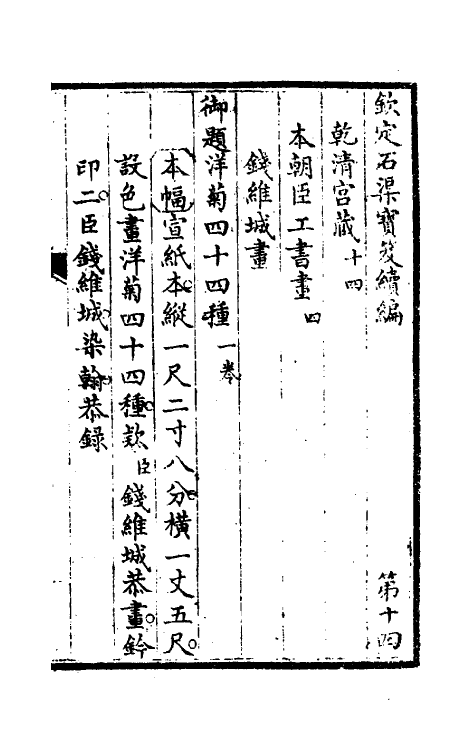 欽定石渠寶笈續編 第十四
乾清宮藏十四
本朝臣工書畫四
錢維城畫
御題洋菊四十四種一卷
本幅宣紙本縱一尺二寸八分橫一丈五尺
設色畫洋菊四十四種款臣錢維城恭畫鈐
印二臣錢維城染翰恭錄